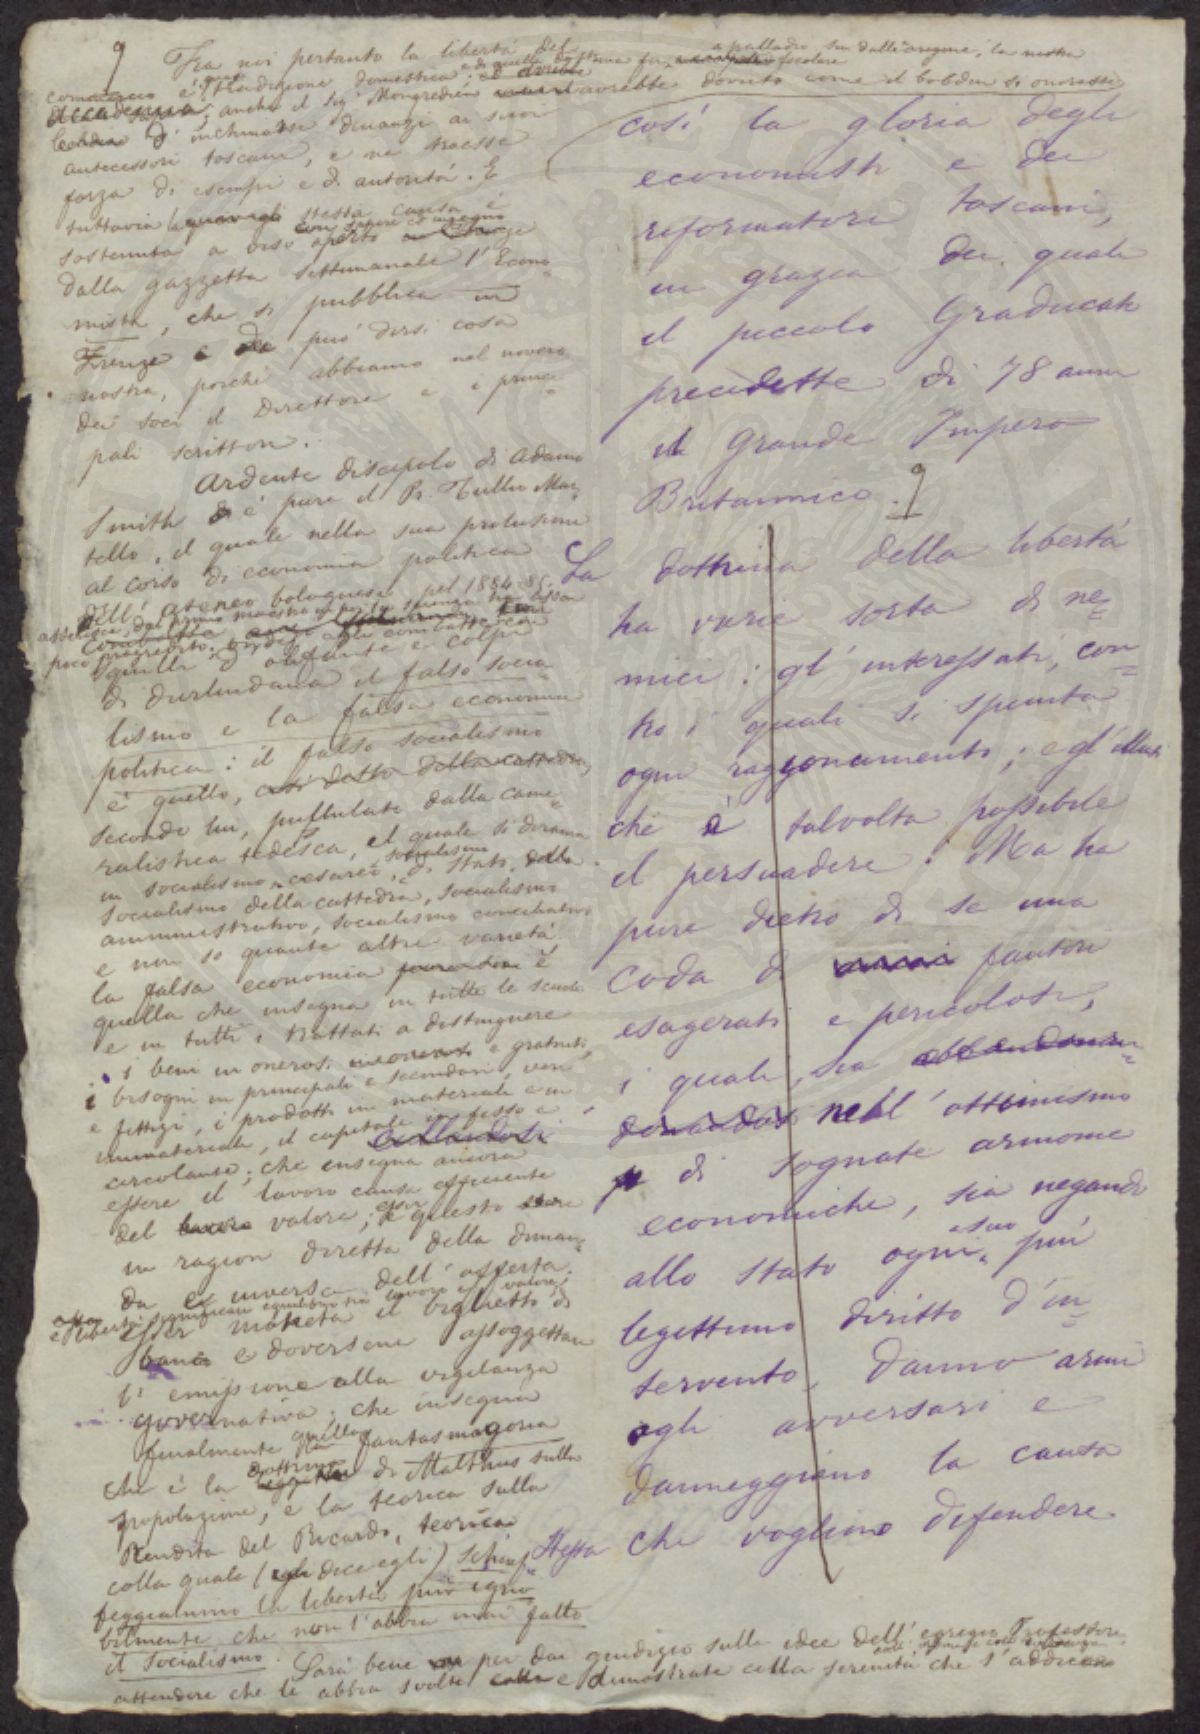 9
Fra noi pertanto la libertà del
commercio è tradizione domestica: e di quella dottrina fu palladio sin dall'origine, la nostra
anche il Sig.r Mongredien avrebbe dovuto come il Cobden si onorasse
d'inchinarsi dinanzi ai suoi
antecessori toscani, e ne traesse
forza di esempi e di autorità. E
tuttavia la stessa causa è
sostenuta a viso aperto con sapere ed ingegno
dalla gazzetta settimanale l'Econo-
mista, che si pubblica in
Firenze e può dirsi cosa
nostra, poiché abbiamo nel novero
dei soci il Direttore e i princi-
pali scrittori.
Ardente discepolo di Adamo
Smith è pure il Pr. Tullio Mar-
tello, il quale nella sua prolusione
al corso di economia politica
dell'ateneo bolognese pel 1884-85,
poco progredito,
di olifante e colpi
di Durlindana il falso socia-
lismo e la falsa economia
politica: il falso socialismo
è quello, così detto della cattedra,
secondo lui, pullulato dalla came-
ralistica tedesca, il quale si dirama
in socialismo cesareo, socialismo di Stato,
socialismo della cattedra, socialismo
amministrativo, socialismo conciliativo
e non so quante altre varietà:
la falsa economia è
quella che insegna in tutte le scuole
e in tutti i trattati a distinguere
i beni in onerosi e gratuiti,
i bisogni in principali e secondari, veri
e fittizi, i prodotti in materiali e in
immateriali, il capitale in fisso e
circolante; che insegna ancora
essere il lavoro causa efficiente
del valore; e questo essere
in ragion diretta della diman-
da e inversa dell'offerta.
e libertà significare equilibrio tra lavoro e valore;
esser moneta il biglietto di
banco e doversene assoggettare
l'emissione alla vigilanza
governativa; che insegna
finalmente quella fantasmagoria
che è la dottrina di Malthus sulla
popolazione, e la teorica sulla
Rendita del Ricardo, teorica
colla quale (dice egli) schiaf-
feggiammo la libertà più igno-
bilmente che non l'abbia mai fatto
il socialismo. Sarà bene per dar giudizio sulle idee dell'egregio Professore
attendere che le abbia svolte e dimostrate colla serenità che s'addice
così la gloria degli
economisti e dei
riformatori toscani,
in grazia dei quali
il piccolo Graducato
precedette di 78 anni
il Grande Impero
Britannico. 9
La dottrina della libertà
ha varie sorta di ne-
mici: gl'interessati, con-
tro i quali si spunta
ogni ragionamento; e gl'illusi
che è talvolta possibile
il persuadere. Ma ha
pure dietro di se una
coda di fautori
esagerati e pericolosi,
i quali, sia
nell'ottimismo
di sognate armonie
economiche, sia negando
allo stato ogni suo più
legittimo diritto d'in-
tervento, danno armi
agli avversari e
danneggiano la causa
stessa che vogliono difendere.